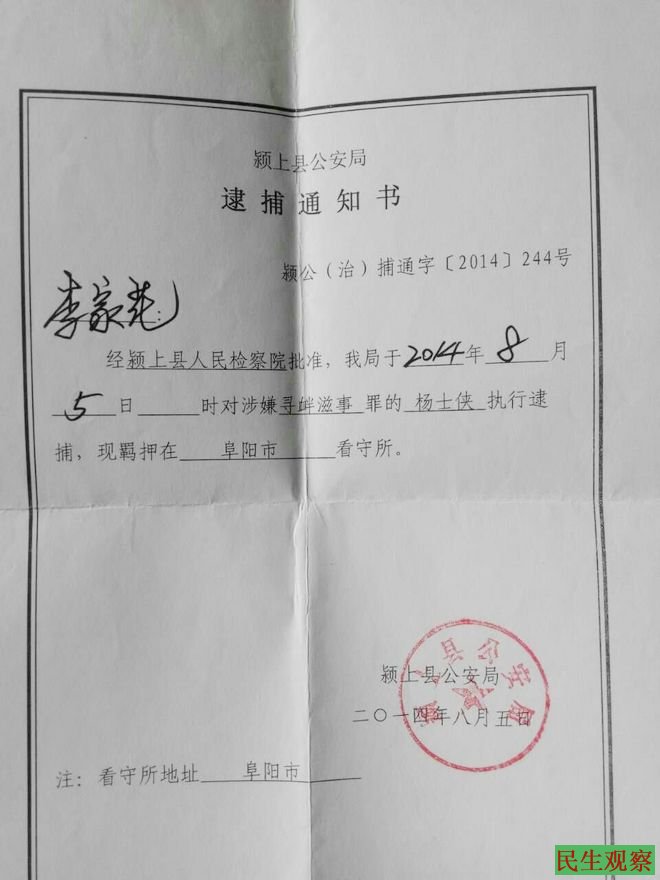 颍上县公安局
逮捕通知书
颍公（治）捕通字〔2014〕244号
李家
：
经颍上县人民检察院批准，我局于2014年8月
5日 时对涉嫌寻衅滋事 罪的 杨士侠 执行逮
捕，现羁押在 阜阳市 看守所。
县公安局
颍上县公安局
二〇一四年八月五日
注：看守所地址 阜阳市
民生观察